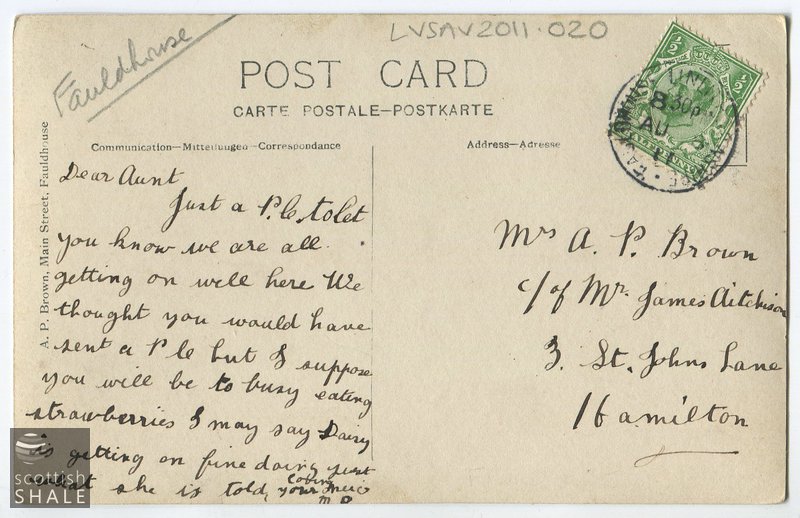 LVSAV2011.020
Fauldhouse
POST CARD
CARTE POSTALE–POSTKARTE
Communication–Mitteilungen–Correspondance
Address–Adresse
A. P. Brown, Main Street, Fauldhouse
½ ½
8 30PM
AU
Dear Aunt
Just a P.c. to let
you know we are all
getting on well here We
thought you would have
sent a P c but I suppose
you will be to busy eating
strawberries I may say Daisy
is getting on fine doing just
what she is told,
your
Mrs A. P. Brown
c/of Mr. James Aitchison
3. St. Johns Lane
Hamilton
scottish
SHALE